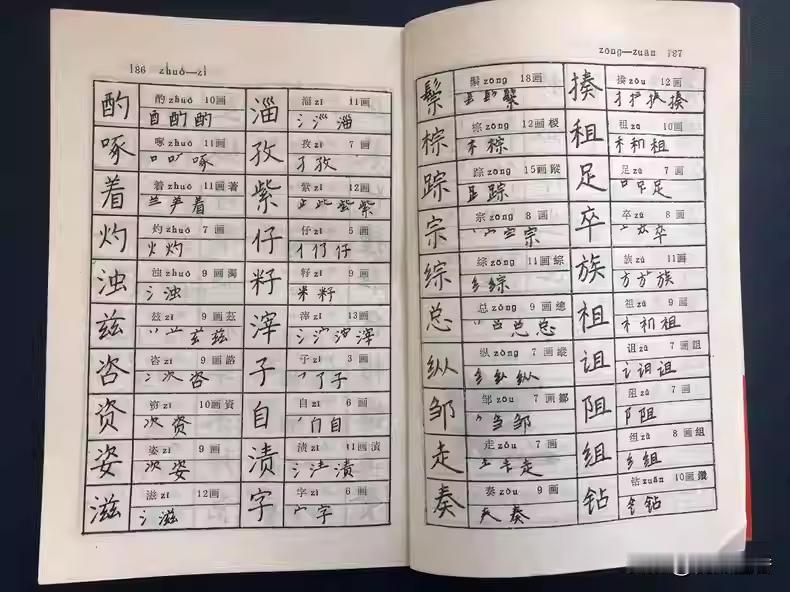 186 zhuó—zì
酌
酌 zhuó 10画
酉 酌 酌
啄
啄 zhuó 11画
口 啄
着
着 zhuó 11画 着
着
灼
灼 zhuó 7 画
火 灼
浊
浊 zhuó 9 画 濁
氵 浊
兹
兹 zī 9 画 茲
兹 兹
咨
咨 zī 9 画 諮
冫 次 咨
资
资 zī 10画 資
次 资
姿
姿 zī 9 画
次 姿
滋
滋 zī 12画
氵 滋
淄
淄 zī 11画
氵 淄
孜
孜 zī 7 画
子 孜
紫
紫 zǐ 12画
止 此 紫
仔
仔 zǐ 5 画
亻 仔
籽
籽 zǐ 9 画
米 籽
滓
滓 zǐ 13画
氵 滓
子
子 zǐ 3 画
了 子
自
自 zì 6 画
自
渍
渍 zì 11画 漬
氵 渍
字
字 zì 6 画
宀 字
zōng—zuān 187
鬃
鬃 zōng 18画
镸 髟 鬃
棕
棕 zōng 12画 椶
木 棕
踪
踪 zōng 15画 蹤
踪
宗
宗 zōng 8 画
宀 宗
综
综 zōng 11画 綜
纟 综
总
总 zǒng 9 画 總
总 总
纵
纵 zòng 7 画 縱
纟 纵
邹
邹 zōu 7 画 鄒
刍 邹
走
走 zǒu 7 画
土 走
奏
奏 zòu 9 画
奏
揍
揍 zòu 12画
扌 揍
租
租 zū 10画
禾 和 租
足
足 zú 7 画
口 足
卒
卒 zú 8 画
卒
族
族 zú 11画
方 族
祖
祖 zǔ 9 画
祖
诅
诅 zǔ 7 画 詛
讠 诅
阻
阻 zǔ 7 画
阝 阻
组
组 zǔ 8 画 組
纟 组
钻
钻 zuān 10画 鑽
钅 钻